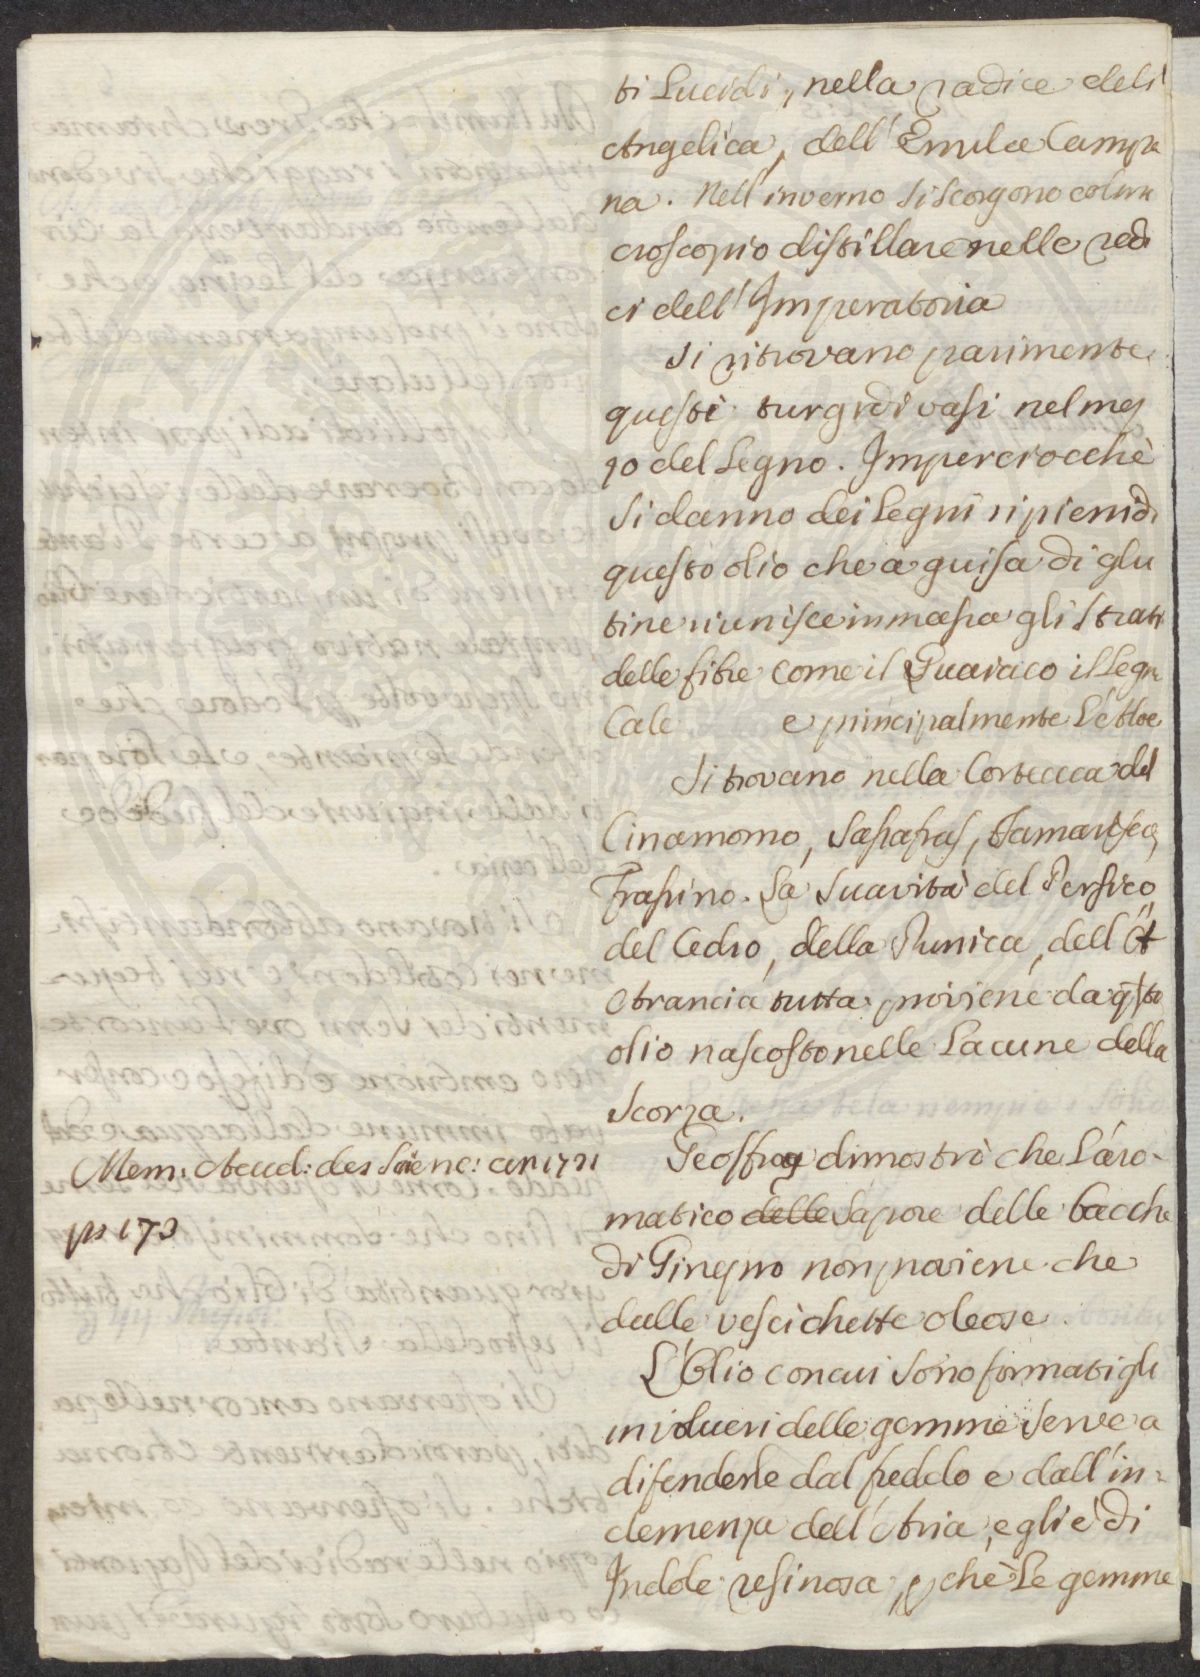 ti Lucidi, nella radice dell'
Angelica, dell' Enula Campa
na. Nell'inverno si scorgono col mi
croscopio distillare nelle radi
ci dell' Imperatoria
Si ritrovano parimente
questi turgidi vasi nel mez
zo del Legno. Imperciocchè
Si danno dei Legni ripieni di
questo olio che a guisa di glu
tine riunisce in massa gli strati
delle fibre come il Guaiaco il Legn
Cale e principalmente L'Aloe
Si trovano nella Corteccia del
Cinamomo, Sassafras, Tamarisco,
Frassino. La Suavità del Persico,
del Cedro, della Punica, dell' A
Arancia tutta proviene da q̃sto
olio nascosto nelle Lacune della
Scorza.
Geoffroy dimostrò che L'aro-
matico delle Sapore delle bacche
di Ginepro non proviene che
dalle vescichette oleose.
L'Olio con cui sono formati gli
involucri delle gemme serve a
difenderle dal freddo e dall'in=
clemenza dell'Aria, egli è di
Indole resinosa, pchè Le gemme
Mem: Acad: des Scienc: an 1721
ps 173